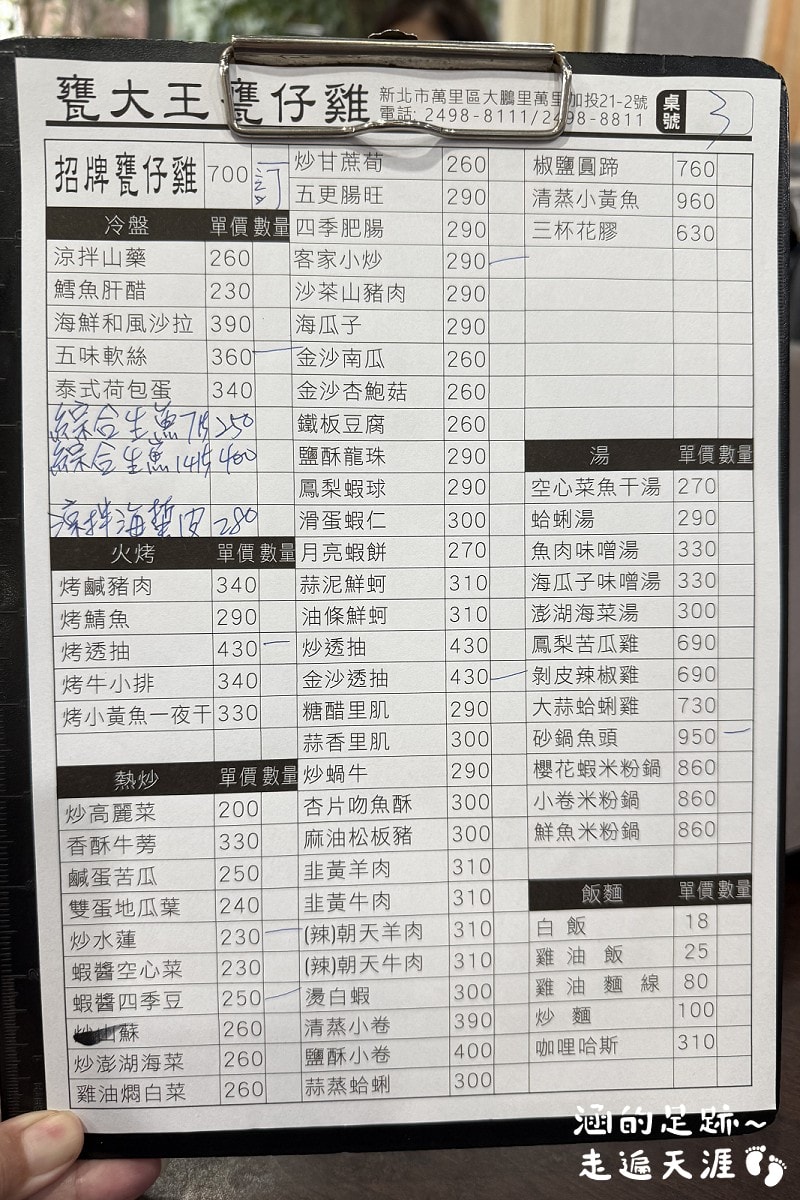 甕大王 甕仔雞
新北市萬里區大鵬里萬里加投21-2號
電話: 2498-8111/2498-8811
桌號 3
招牌甕仔雞 700 訂
冷盤 單價 數量
涼拌山藥 260
鱈魚肝醋 230
海鮮和風沙拉 390
五味軟絲 360
泰式荷包蛋 340
綜合生魚7片 250
綜合生魚14片 400
涼拌海蜇皮 280
火烤 單價 數量
烤鹹豬肉 340
烤鯖魚 290
烤透抽 430
烤牛小排 340
烤小黃魚一夜干 330
熱炒 單價 數量
炒高麗菜 200
香酥牛蒡 330
鹹蛋苦瓜 250
雙蛋地瓜葉 240
炒水蓮 230
蝦醬空心菜 230
蝦醬四季豆 250
炒山蘇 260
炒澎湖海菜 260
雞油燜白菜 260
炒甘蔗荀 260
五更腸旺 290
四季肥腸 290
客家小炒 290
沙茶山豬肉 290
海瓜子 290
金沙南瓜 260
金沙杏鮑菇 260
鐵板豆腐 260
鹽酥龍珠 290
鳳梨蝦球 290
滑蛋蝦仁 300
月亮蝦餅 270
蒜泥鮮蚵 310
油條鮮蚵 310
炒透抽 430
金沙透抽 430
糖醋里肌 290
蒜香里肌 300
炒蝸牛 290
杏片吻魚酥 300
麻油松板豬 300
韭黃羊肉 310
韭黃牛肉 310
(辣)朝天羊肉 310
(辣)朝天牛肉 310
燙白蝦 300
清蒸小卷 390
鹽酥小卷 400
蒜蒸蛤蜊 300
椒鹽圓蹄 760
清蒸小黃魚 960
三杯花膠 630
湯 單價 數量
空心菜魚干湯 270
蛤蜊湯 290
魚肉味噌湯 330
海瓜子味噌湯 330
澎湖海菜湯 300
鳳梨苦瓜雞 690
剝皮辣椒雞 690
大蒜蛤蜊雞 730
砂鍋魚頭 950
櫻花蝦米粉鍋 860
小卷米粉鍋 860
鮮魚米粉鍋 860
飯麵 單價 數量
白飯 18
雞油飯 25
雞油麵線 80
炒麵 100
咖哩哈斯 310
涵的足跡~
走遍天涯